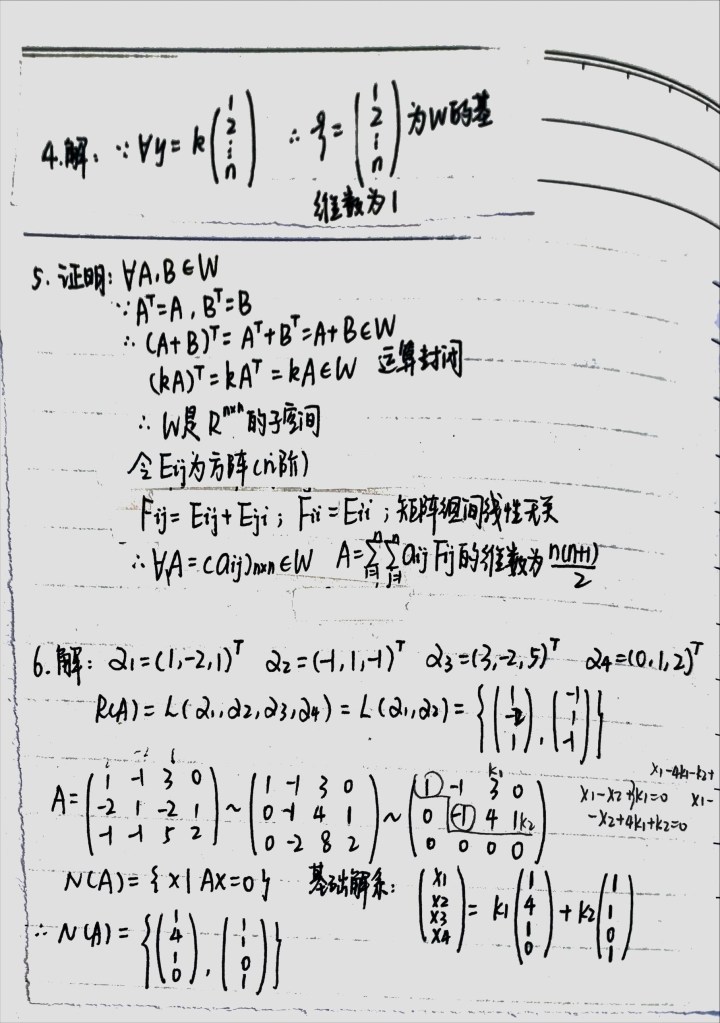 4.解: ∵ ∀y = k(1 2 ⋮ n) ∴ ξ = (1 2 ⋮ n) 为W的基
维数为1
5. 证明: ∀A,B∈W
∵ Aᵀ=A, Bᵀ=B
∴ (A+B)ᵀ = Aᵀ+Bᵀ = A+B∈W
(kA)ᵀ = kAᵀ = kA∈W 运算封闭
∴ W是 Rⁿˣⁿ 的子空间
令Eij为方阵(n阶)
Fij = Eij + Eji ; Fii = Eii ; 矩阵组间线性无关
∴ ∀A = (aij)n×n ∈W A = ∑ⁿi=1 ∑ⁿj=1 aij Fij 的维数为 n(n+1)/2
6.解: α1=(1,-2,1)ᵀ α2=(-1,1,-1)ᵀ α3=(3,-2,5)ᵀ α4=(0,1,2)ᵀ
R(A) = L(α1,α2,α3,α4) = L(α1,α2) = {(1 -2 1), (-1 1 -1)}
A = (1 -1 3 0 / -2 1 -2 1 / -1 -1 5 2) ~ (1 -1 3 0 / 0 -1 4 1 / 0 -2 8 2) ~ (1 -1 3 0 / 0 -1 4 1 / 0 0 0 0)
k1
k2
x1-4k1-k2+
x1-x2+3k1=0 x1-
-x2+4k1+k2=0
N(A) = {x | Ax=0} 基础解系: (x1 x2 x3 x4) = k1(1 4 1 0) + k2(1 1 0 1)
∴ N(A) = {(1 4 1 0), (1 1 0 1)}